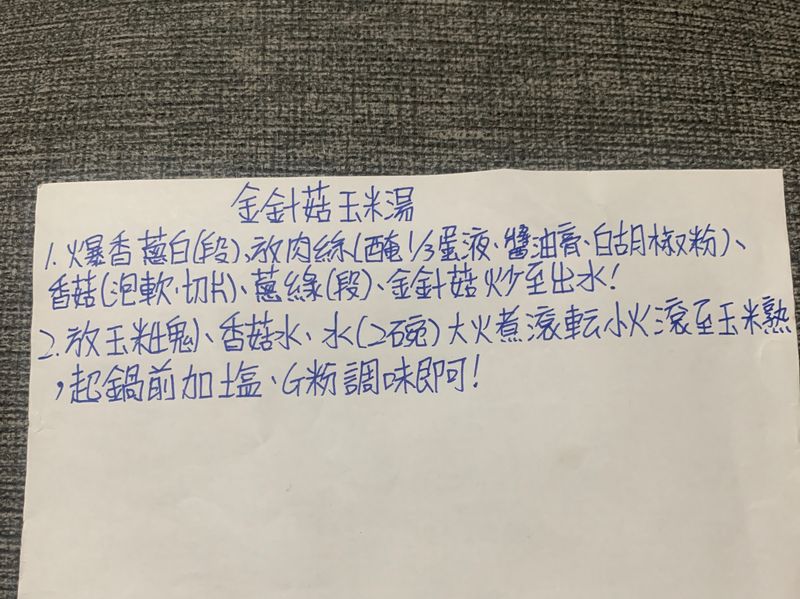 金針菇玉米湯
1. 爆香蔥白(段)、放肉絲(醃1/3蛋液、醬油膏、白胡椒粉)、
香菇(泡軟、切片)、蔥綠(段)、金針菇炒至出水!
2. 放玉米(塊)、香菇水、水(2碗)大火煮滾転小火滾至玉米熟
，起鍋前加塩、G粉調味即可!